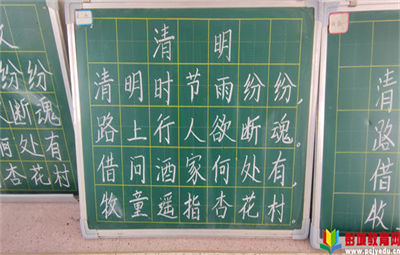 清 明
清明时节雨纷纷，
路上行人欲断魂。
借问酒家何处有，
牧童遥指杏花村。
纷
断魂
处有
杏花村
清
路
借
牧
教育网